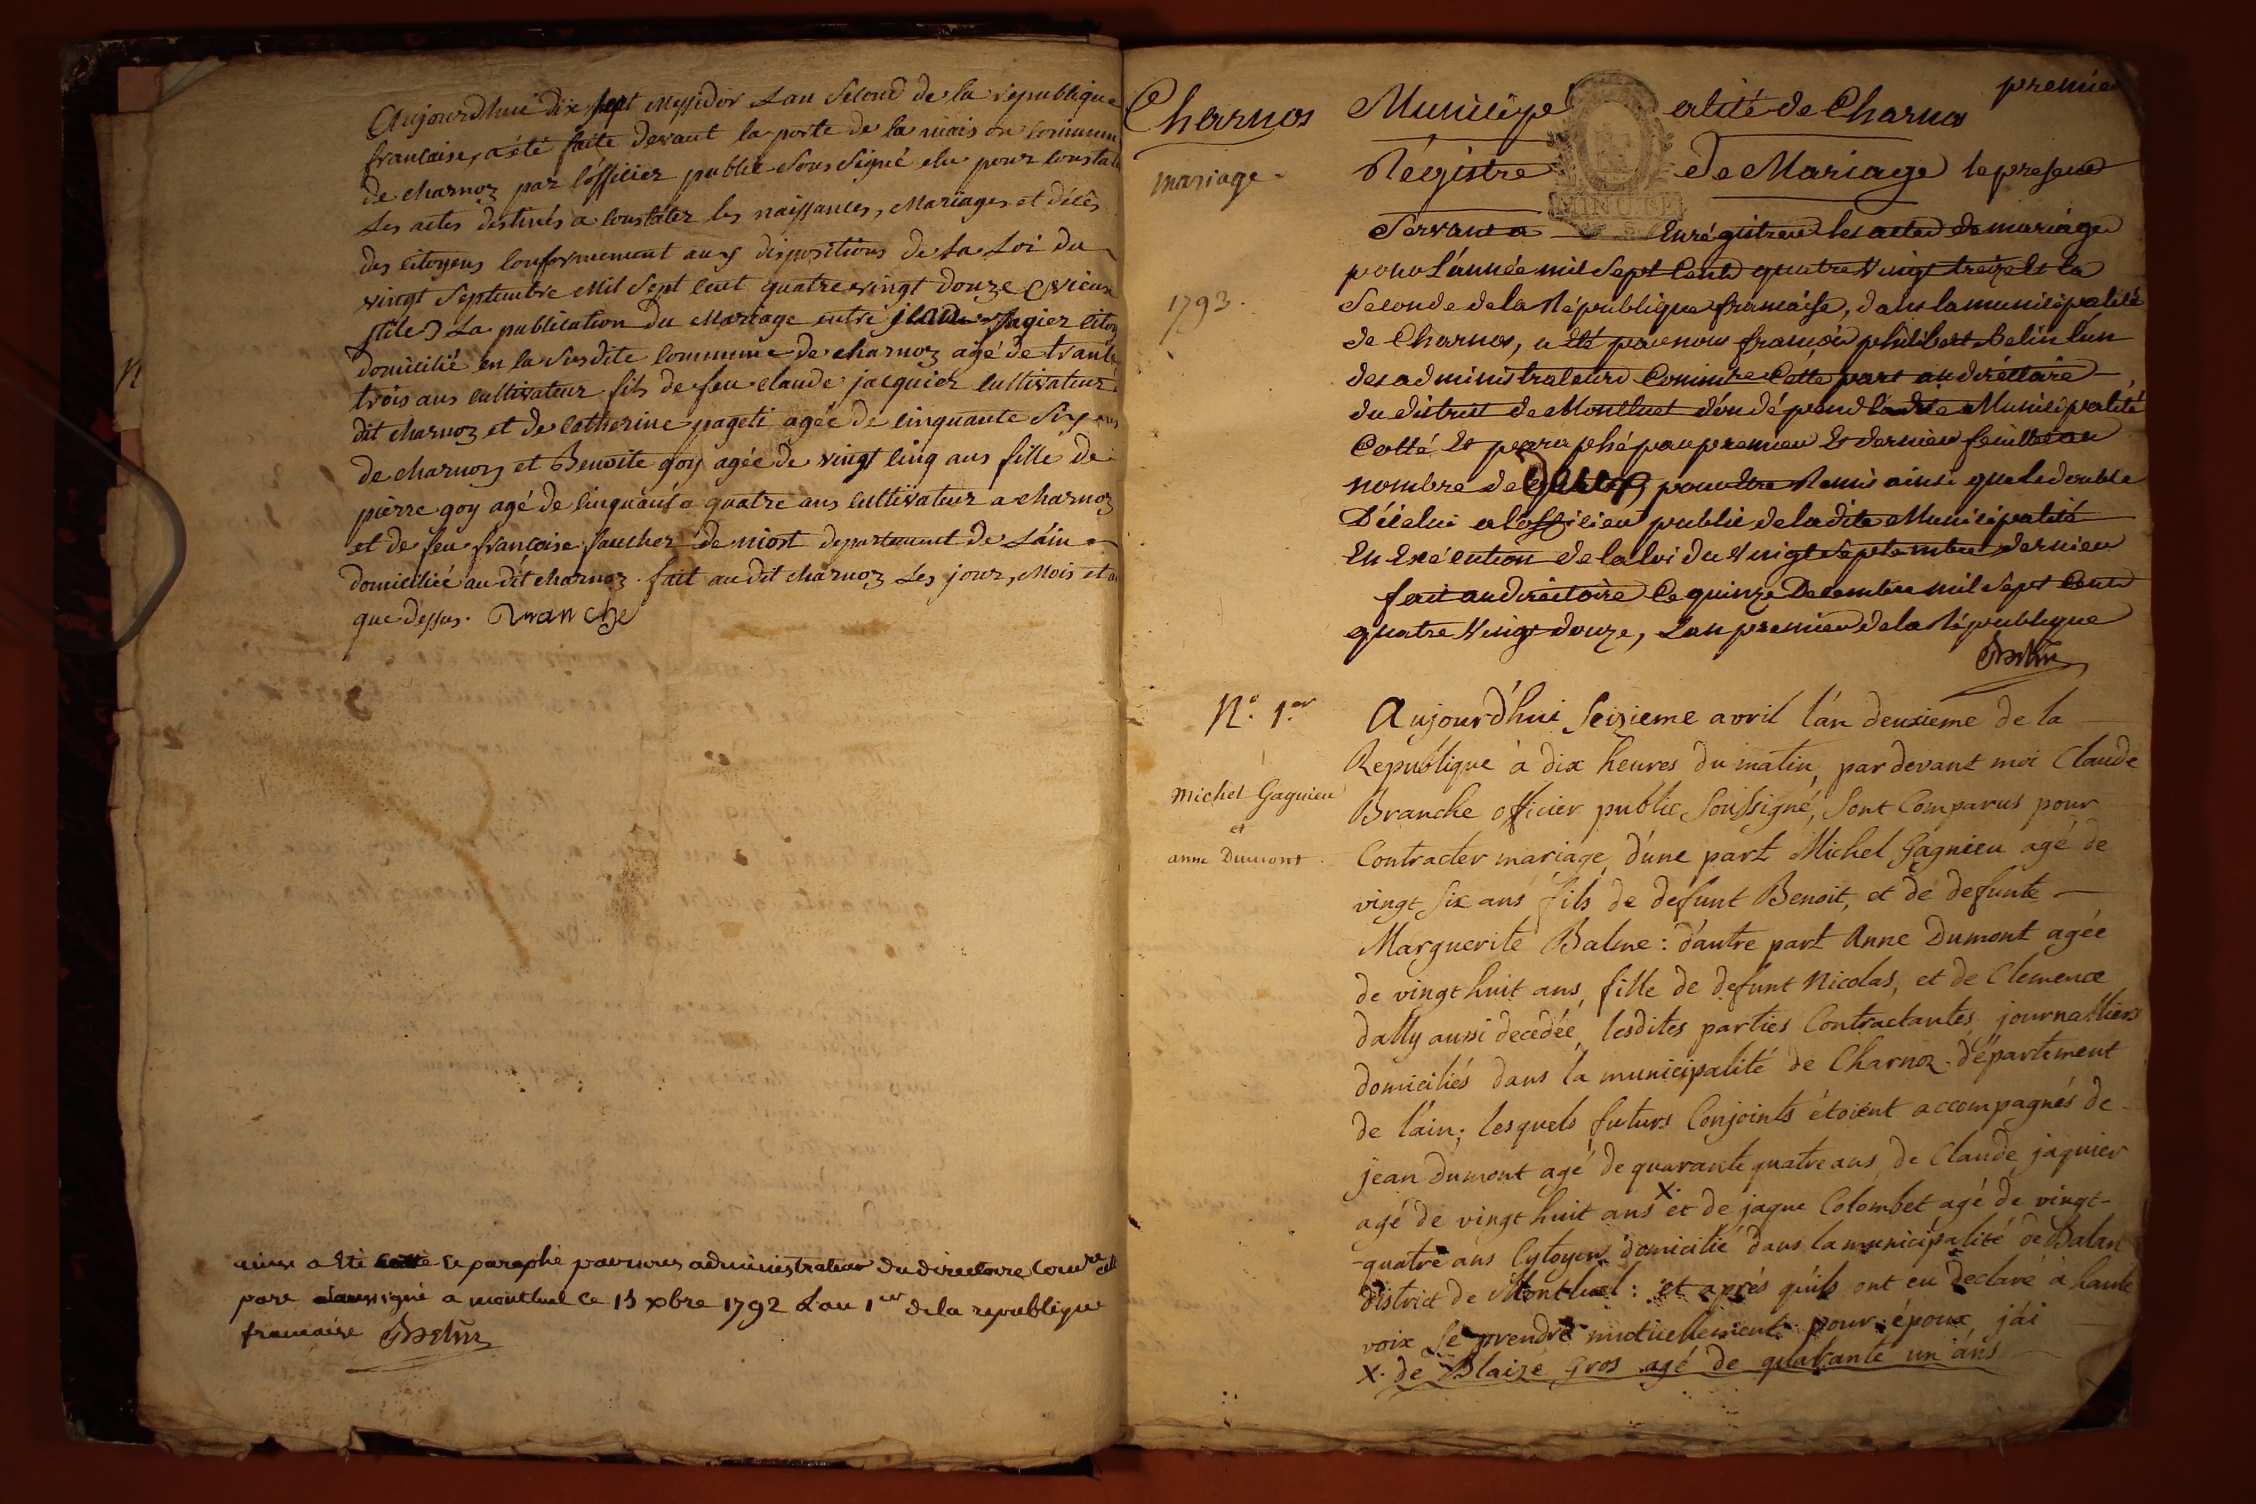 Aujourdhui dix sept messidor Lan second de la republique
francaise, a été faite devant la porte de la maison commun
de charnoz par l'officier public soussigné elu pour constat
Les actes destinés a constater les naissances, Mariages et décès
des citoyens conformement aux dispositions de la Loi du
vingt septembre Mil sept cent quatre vingt douze (vieux
stile) La publication du Mariage entre jean jaqier citoy
domicilié en la susdite commune de charnoz agé de trante
trois ans cultivateur fils de feu claude jacquier cultivateur
dit charnoz et de catherine pageti agée de cinquante six ans
de charnoz et Benoite goy agée de vingt cinq ans fille de
pierre goy agé de cinquante quatre ans cultivateur a charnoz
et de feu françoise faucher de niost departement de Láin
domiciliée au dit charnoz. fait au dit charnoz Les jour, Mois et an
que dessus. Branche
ainsi a été cotté et paraphé par nous administrateur du directoire comre cette
part soussigné a montluel ce 15 xbre 1792 L'an 1er de la republique
francaise Belin
N
premier
Charnos Municip alité de Charnos
mariage. Régistre de Mariage le present
Servant a Enrégistrer les actes de mariage
pour L'année mil Sept Cent quatre Vingt treize et la
1793. Seconde de la République francaise, dans la municipalité
de Charnos, a été par nous françois philibert Belin l'un
des administrateurs Commire Cette part au directoire
du district de Montluet d'ou dépend ladte Municipalité
Cotté et paraphé par premier et dernier feuillet au
nombre de deux pour être Remis ainsi que le double
D'icelui a l'officier public de la dite Municipalité
En Exécution de la loi du Vingt Septembre dernier
fait au directoire Ce quinze Decembre mil Sept Cent
quatre Vingt douze, Lan premier de la République
Belin
N.o 1.er Aujourd'hui Seizieme avril l'an deuxieme de la
Republique à dix heures du matin, par devant moi Claude
Michel Gagnieu Branche officier public Soussigné, Sont Comparus pour
et
anne Dumont. Contracter mariage, d'une part Michel Gagnieu agé de
vingt Six ans fils de defunt Benoit, et de defunte
Marguerite Balme : d'autre part Anne Dumont agée
de vingt huit ans, fille de defunt Nicolas, et de Clemence
dally aussi decedée, lesdites parties Contractantes journalliers
domiciliés dans la municipalité de Charnoz département
de l'ain; lesquels futurs Conjoints étoient accompagnés de
jean Dumont agé de quarante quatre ans, de Claude jaquier
agé de vingt huit ans X. et de jaque Colombet agé de vingt-
-quatre ans Cytoyen domicilié dans la municipalité de Balan
district de Montluel : et aprés qu'ils ont eu declaré à haute
voix Se prendre mutuellement pour époux, j'ai
X. de Blaize Gros agé de quarante un ans